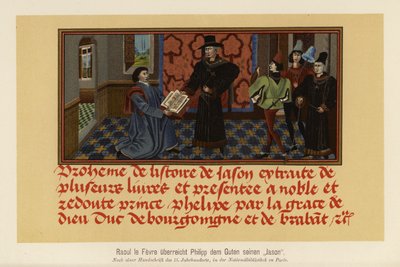 Proheme de listoire de Jason extraite de
pluseurs liures et presentee a noble et
redoute prince, phelipe par la grace de
dieu Duc de bourgoingne et de brabāt, &c
Raoul le Fèvre überreicht Philipp dem Guten seinen „Jason“.
Nach einer Handschrift des 15. Jahrhunderts, in der Nationalbibliothek zu Paris.